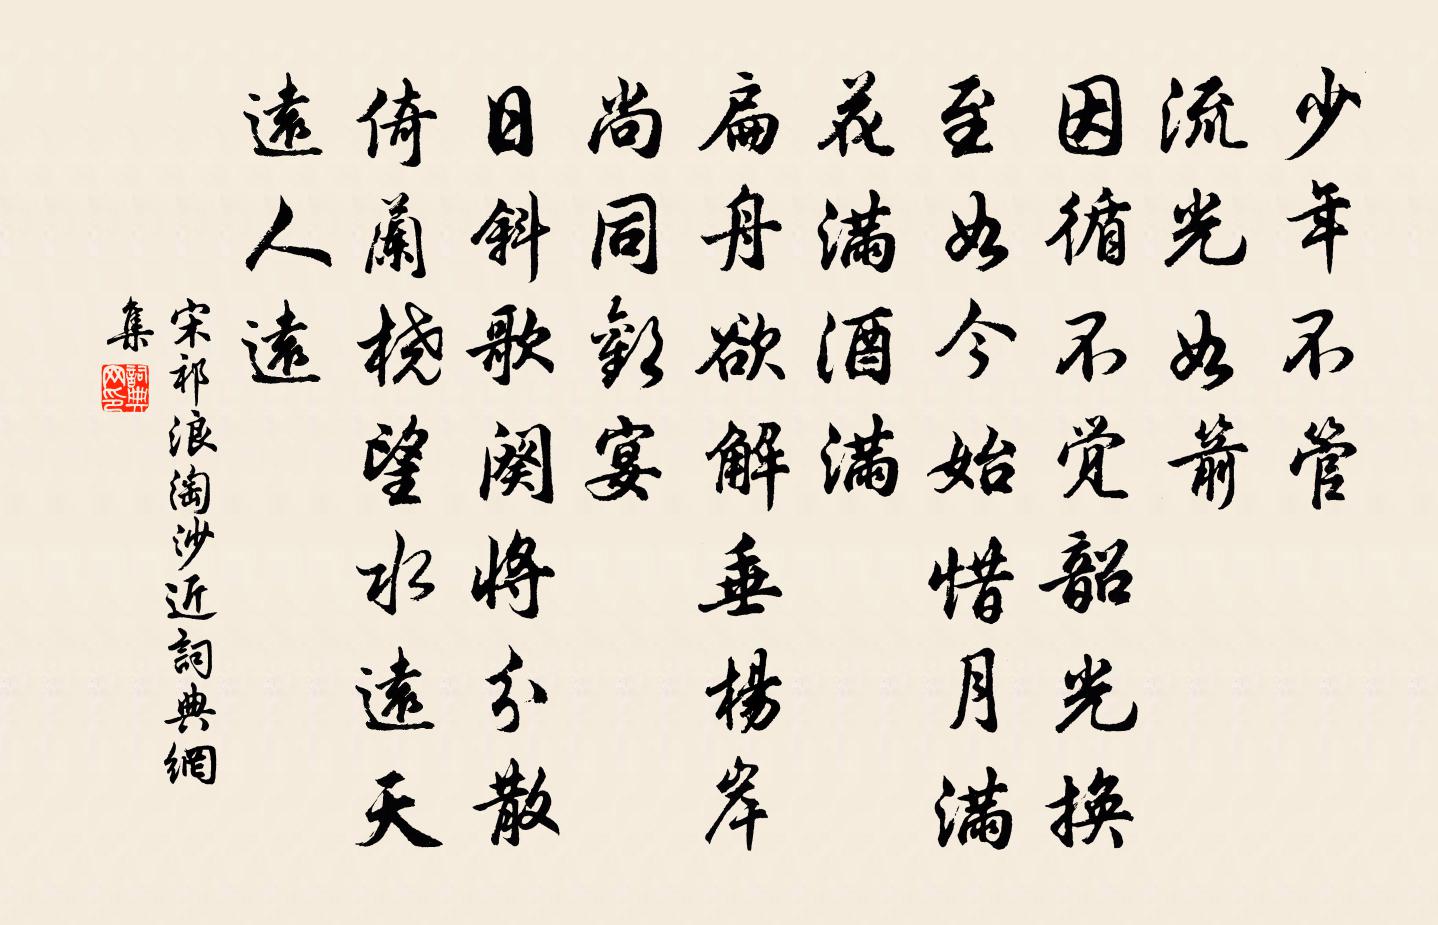 少年不管
流光如箭
因循不觉韶光換
至如今始惜月滿
花滿酒滿
扁舟欲解垂楊岸
尚同歡宴
日斜歌闋將分散
倚蘭橈望水遠天
遠人遠
宋祁浪淘沙近詞典網
集
詞典网印